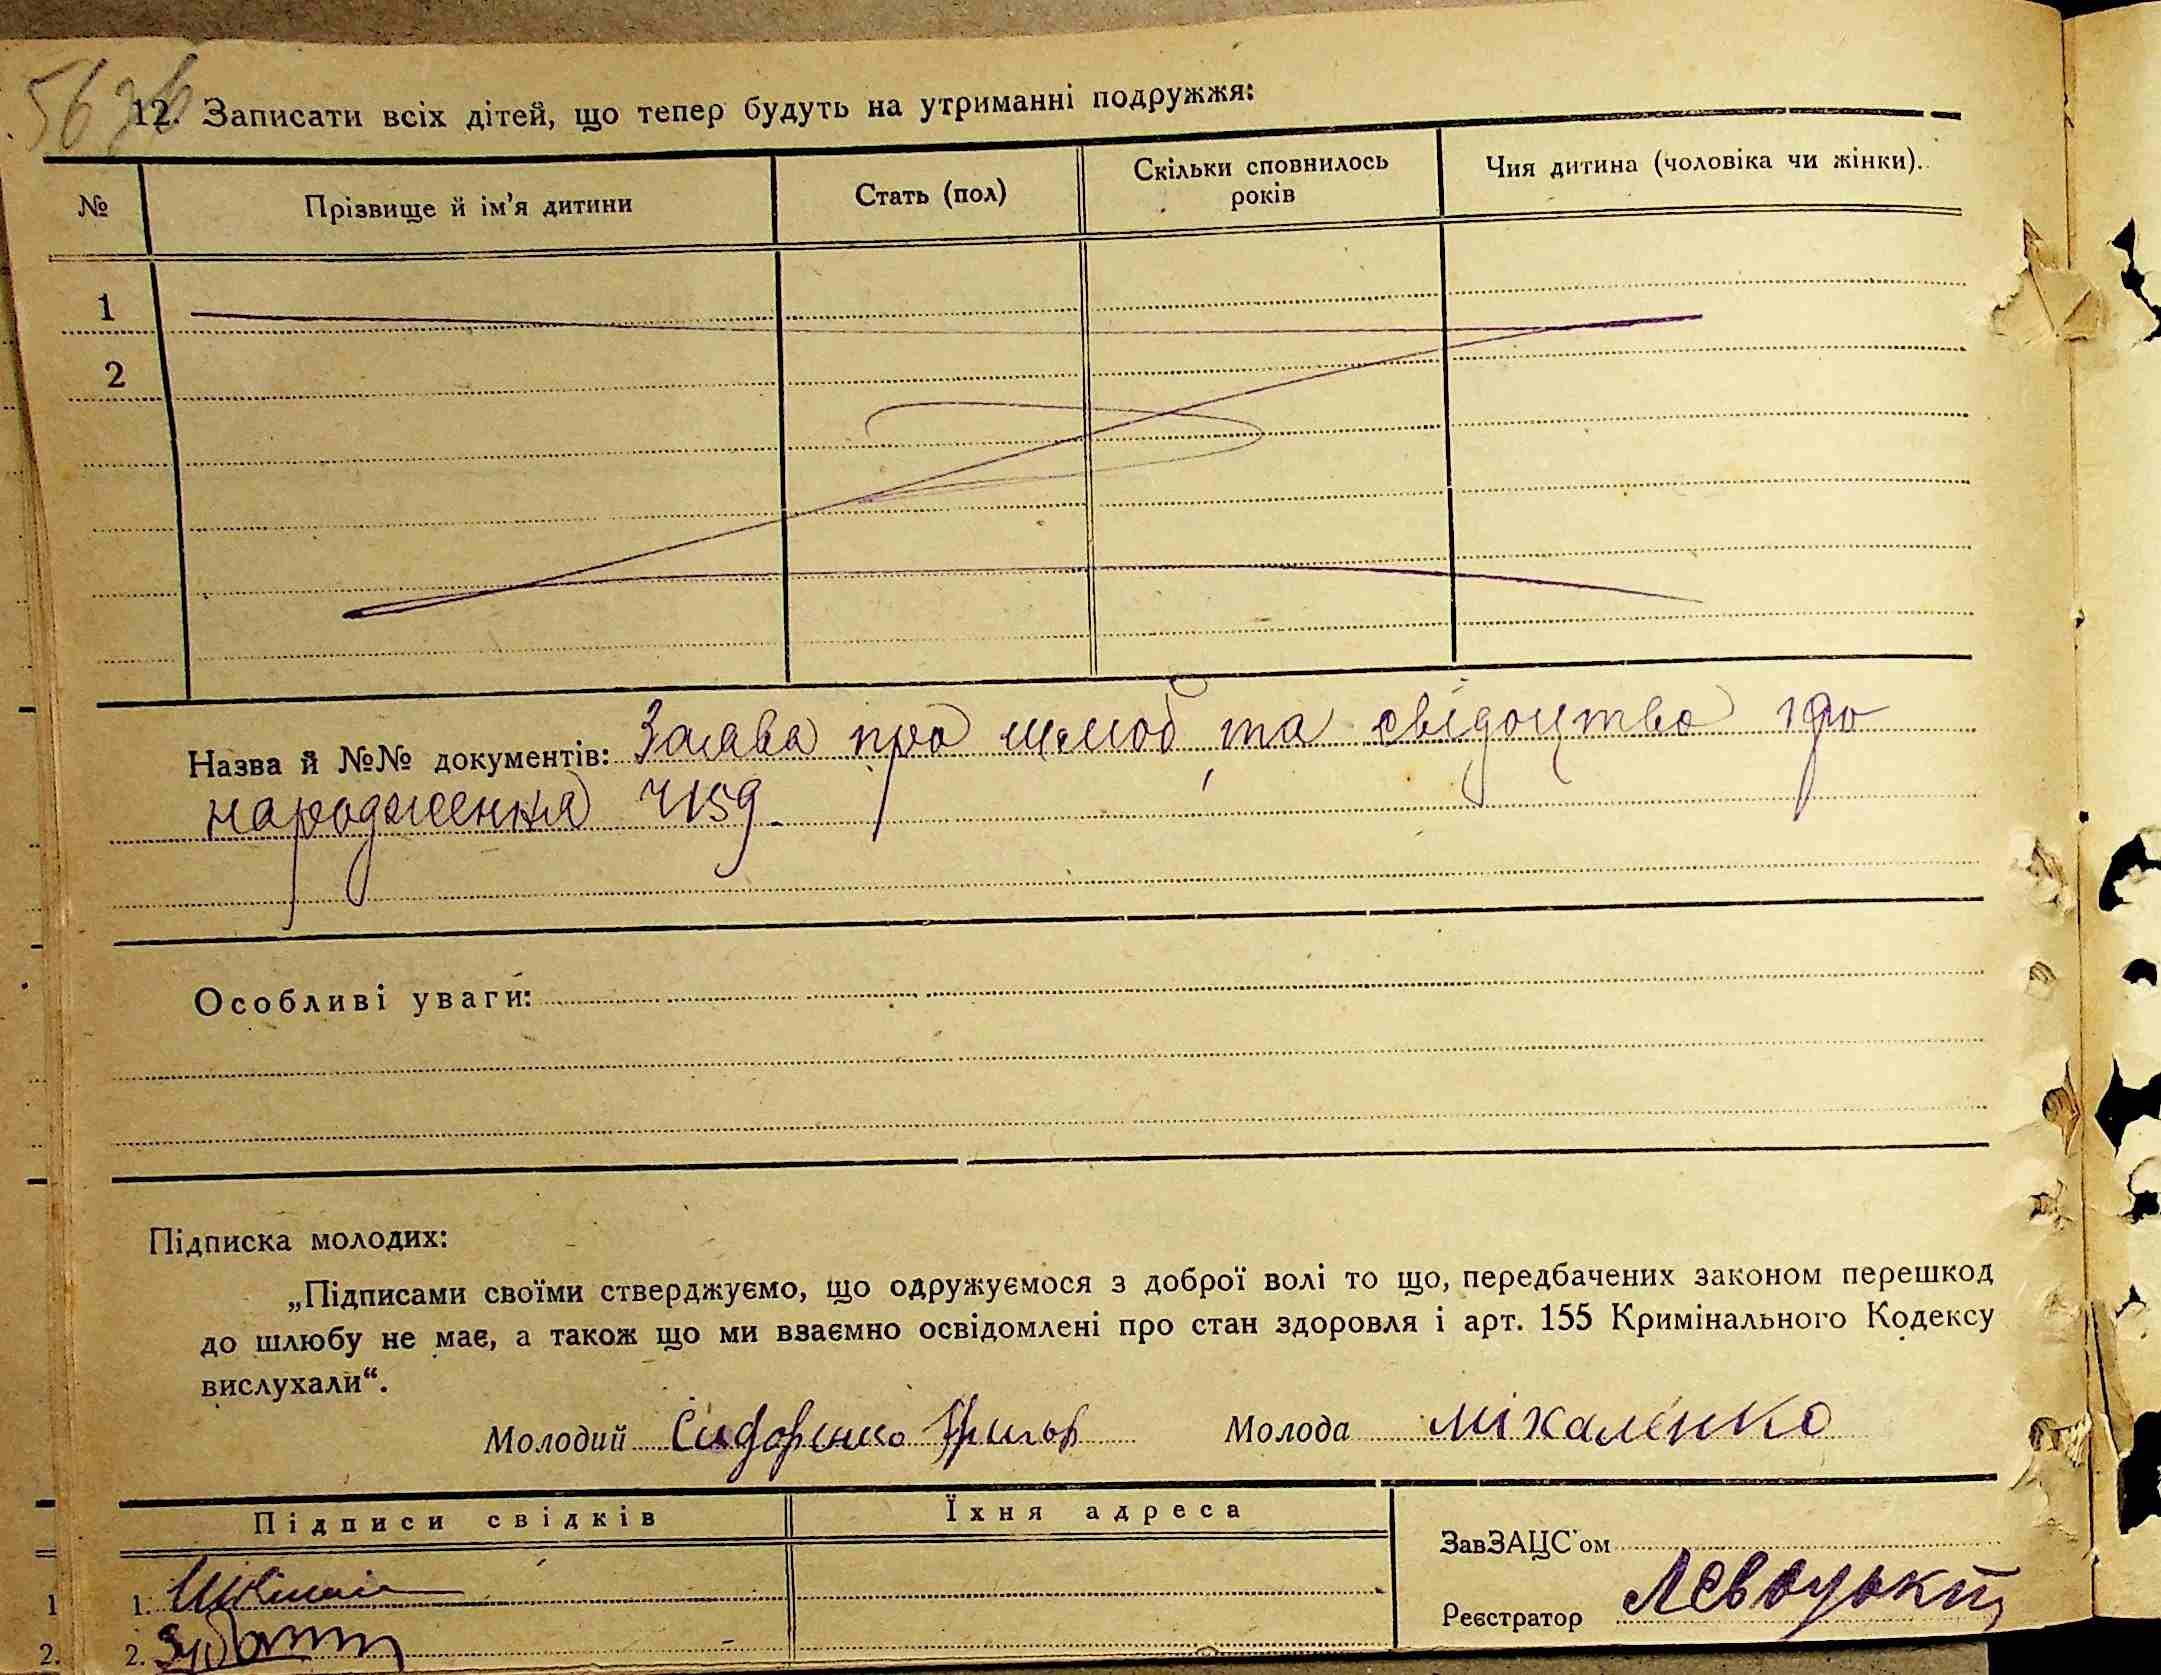 12. Записати всіх дітей, що тепер будуть на утриманні подружжя:
№ Прізвище й ім'я дитини Стать (пол) Скільки сповнилось років Чия дитина (чоловіка чи жінки).
1
2
Назва й №№ документів: Заява про шлюб та свідоцтво про
народження
Особливі уваги:
Підписка молодих:
„Підписами своїми стверджуємо, що одружуємося з доброї волі то що, передбачених законом перешкод
до шлюбу не має, а також що ми взаємно освідомлені про стан здоровля і арт. 155 Кримінального Кодексу
вислухали“.
Молодий Сидоренко Григор Молода Міхаленко
Підписи свідків Їхня адреса
ЗавЗАЦС'ом
1.
Реєстратор
2.